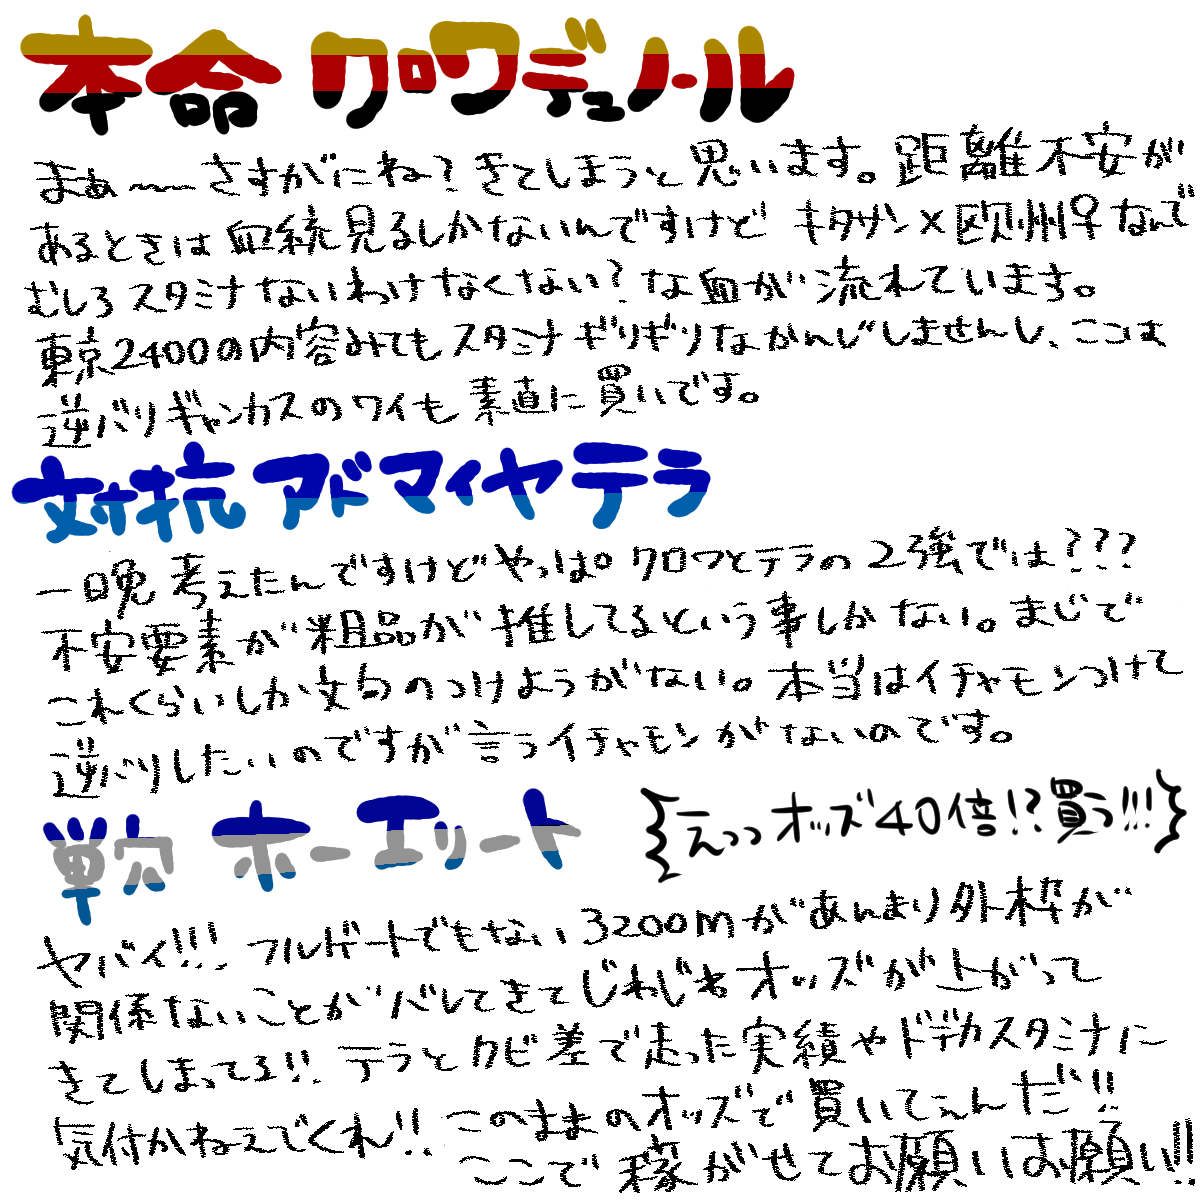 本命 クロワデュノール
まぁ〜〜さすがにね？きてしまうと思います。距離不安が
あるときは血統見るしかないんですけど キタサン×欧州牝なんで
むしろスタミナないわけなくない？な血が流れています。
東京2400の内容みてもスタミナギリギリなかんじしませんし、ここは
逆バリギャンカスのワイも素直に買いです。
対抗 アドマイヤテラ
一晩考えたんですけどやっぱ。クロワとテラの2強では？？？
不安要素が粗品が推してるという事しかない。まじで
これくらいしか文句のつけようがない。本当はイチャモンつけて
逆バリしたいのですが言うイチャモンがないのです。
単穴 ホーエリート
えっっオッズ40倍!?買う!!!
ヤバイ!!! フルゲートでもない3200mがあんまり外枠が
関係ないことがバレてきてじわじわオッズが上がって
きてしまってる!! テラとクビ差で走った実績やドデカスタミナに
気付かねえでくれ!! このままのオッズで買いてぇんだ!!
ここで稼がせてお願いお願い!!